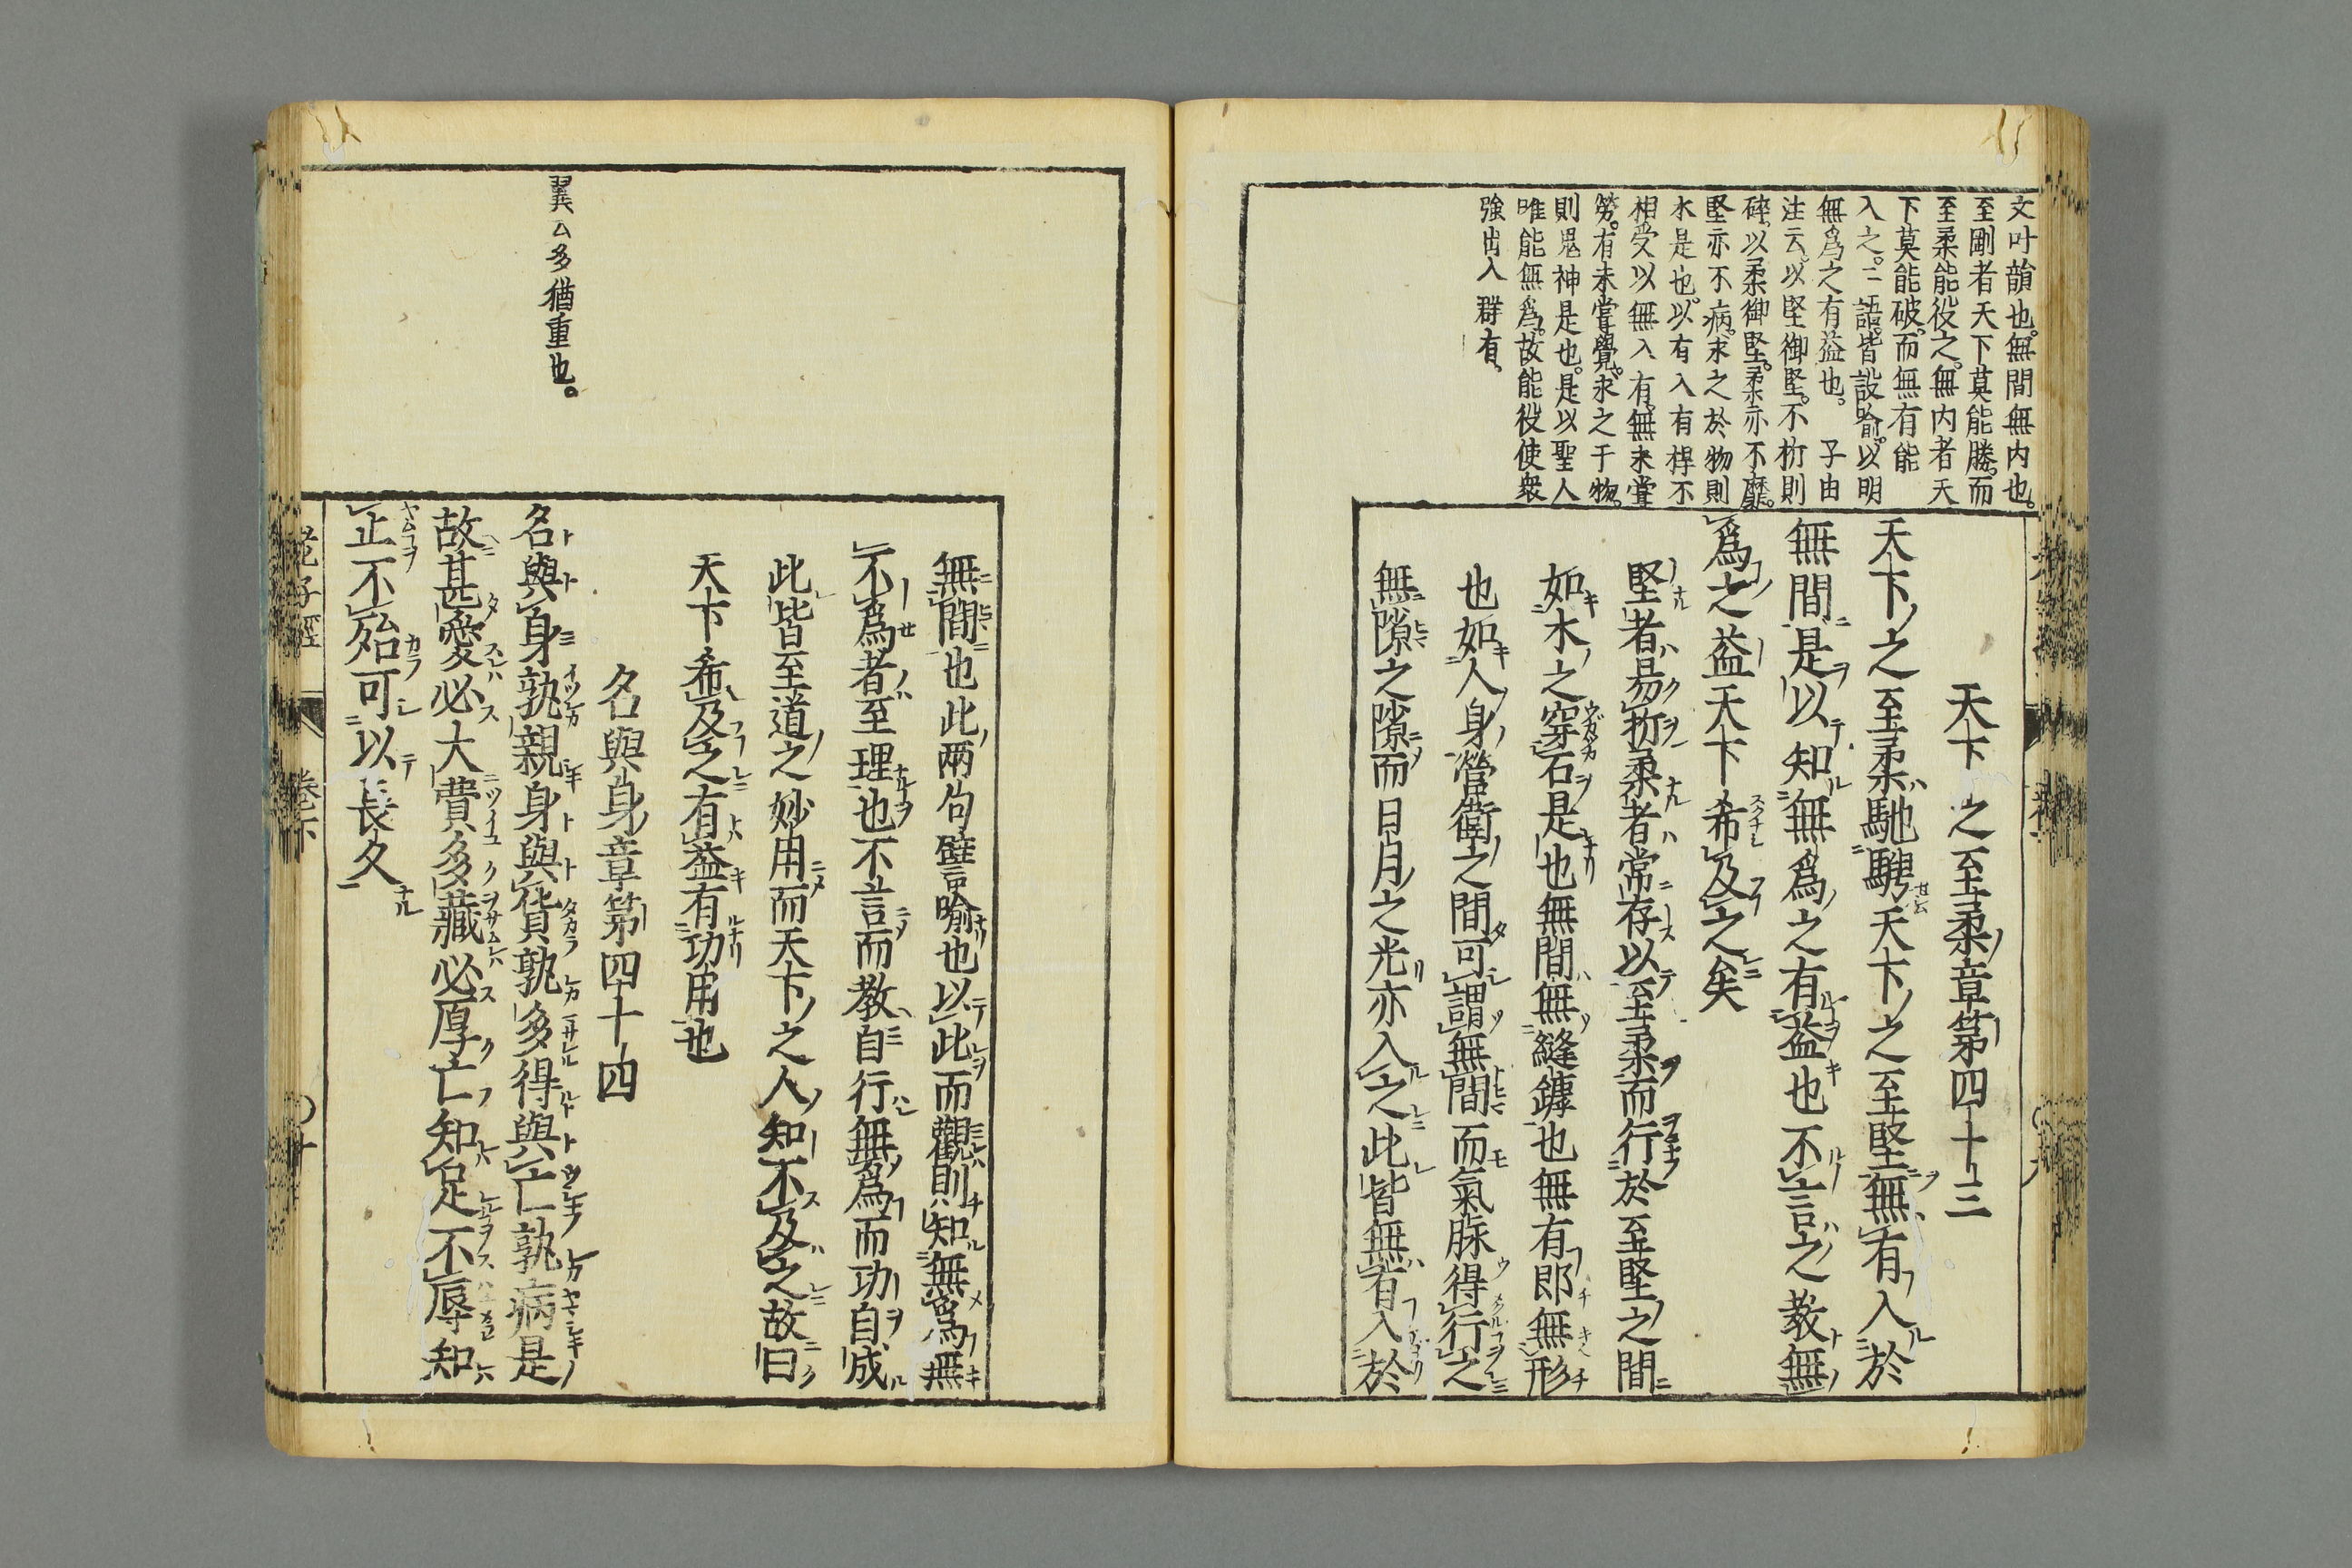 文叶韻也。無間無内也。
至剛者天下莫能勝。而
至柔能役之。無内者天
下莫能破。而無有能
入之。二語皆設喩。以明
無爲之有益也。子由
注云。以堅御堅。不折則
碎。以柔御堅。柔亦不靡。
堅亦不病。求之於物則
水是也。以有入有。捍不
相受。以無入有。無未嘗
勞。有未嘗覺。求之于物。
則鬼神是也。是以聖人
唯能無爲。故能役使衆
強出入群有。
天下之至柔章第四十三
天下之至柔馳騁天下之至堅無有入於
無間是以知無爲之有益也不言之教無
爲之益天下希及之矣
堅者易折柔者常存以至柔而行於至堅之間
如水之穿石是也無間無縫罅也無有即無形
也如人身營衛之間可謂無間而氣脉得行之
無隙之隙而日月之光亦入之此皆無有入於
無間也此兩句譬喩也以此而觀則知無爲無
不爲者至理也不言而教自行無爲而功自成
此皆至道之妙用而天下之人知不及之故曰
天下希及之有益有功用也
翼云多猶重也。
名與身章第四十四
名與身孰親身與貨孰多得與亡孰病是
故甚愛必大費多藏必厚亡知足不辱知
止不殆可以長久
老子經 卷下 〇十